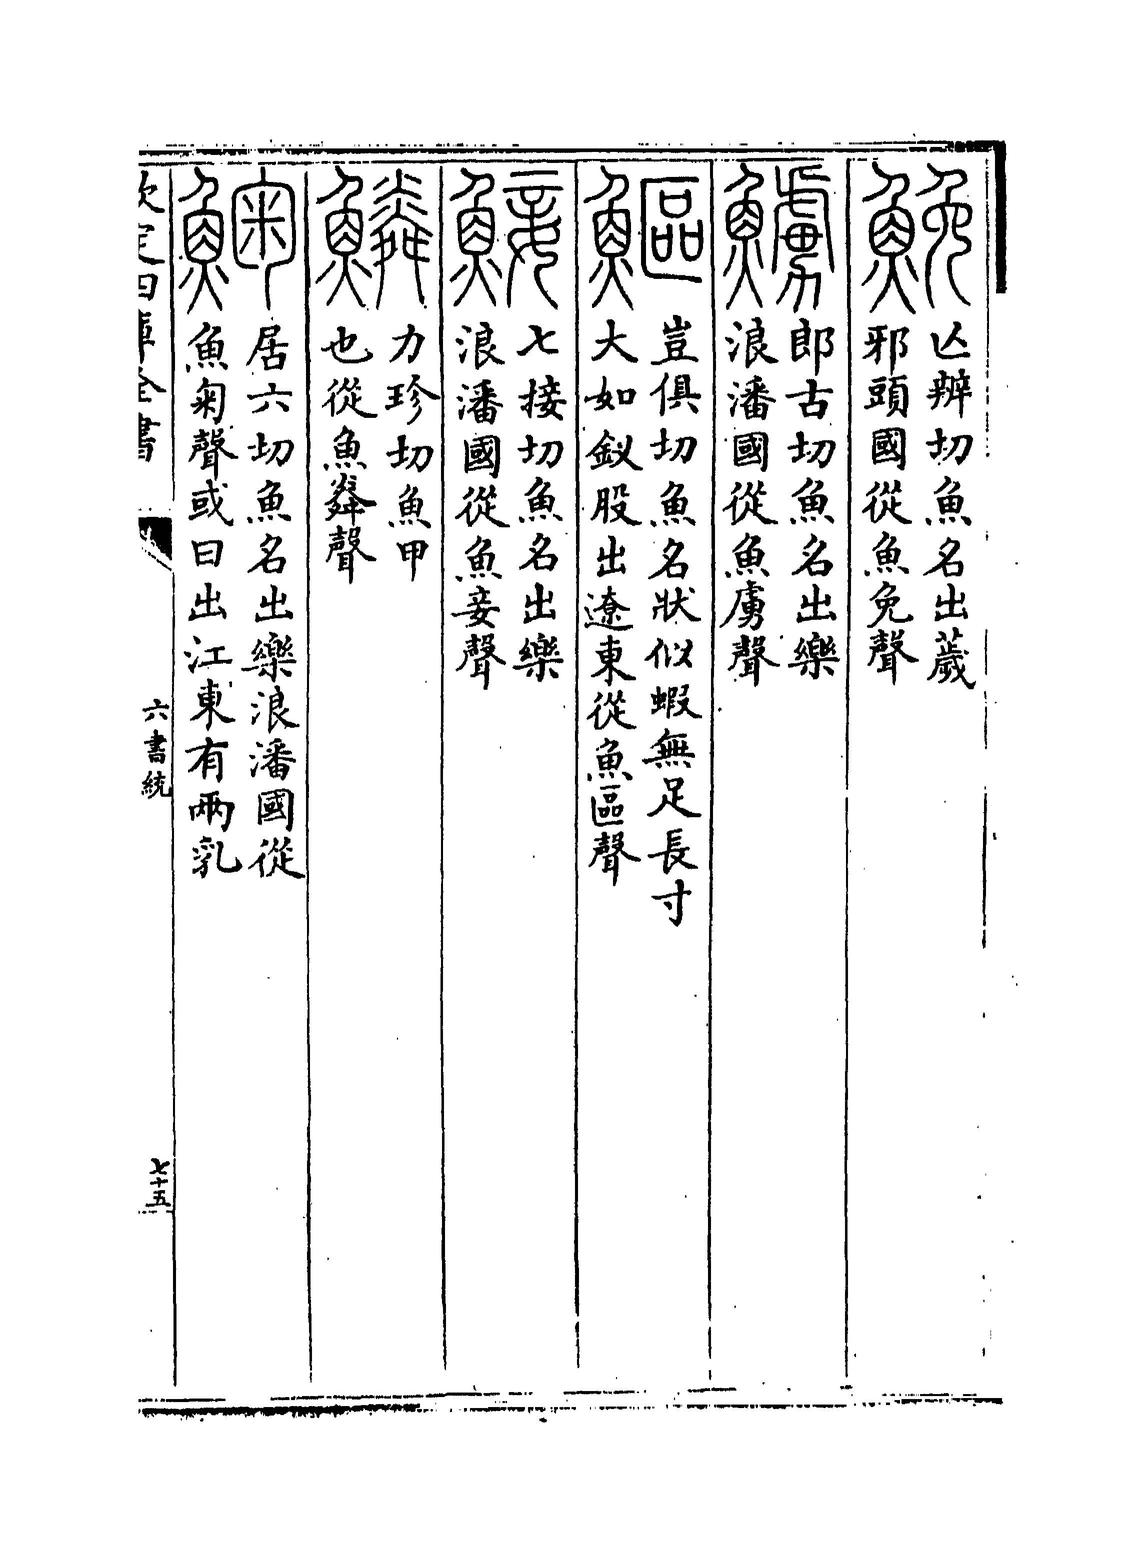 鮸
亾辨切魚名出薉
邪頭國從魚免聲
鱸
郎古切魚名出樂
浪潘國從魚虜聲
鰸
豈俱切魚名狀似蝦無足長寸
大如釵股出遼東從魚區聲
鯜
七接切魚名出樂
浪潘國從魚妾聲
鱗
力珍切魚甲
也從魚粦聲
䱡
居六切魚名出樂浪潘國從
魚匊聲或曰出江東有兩乳
欽定四庫全書
六書統
七十五